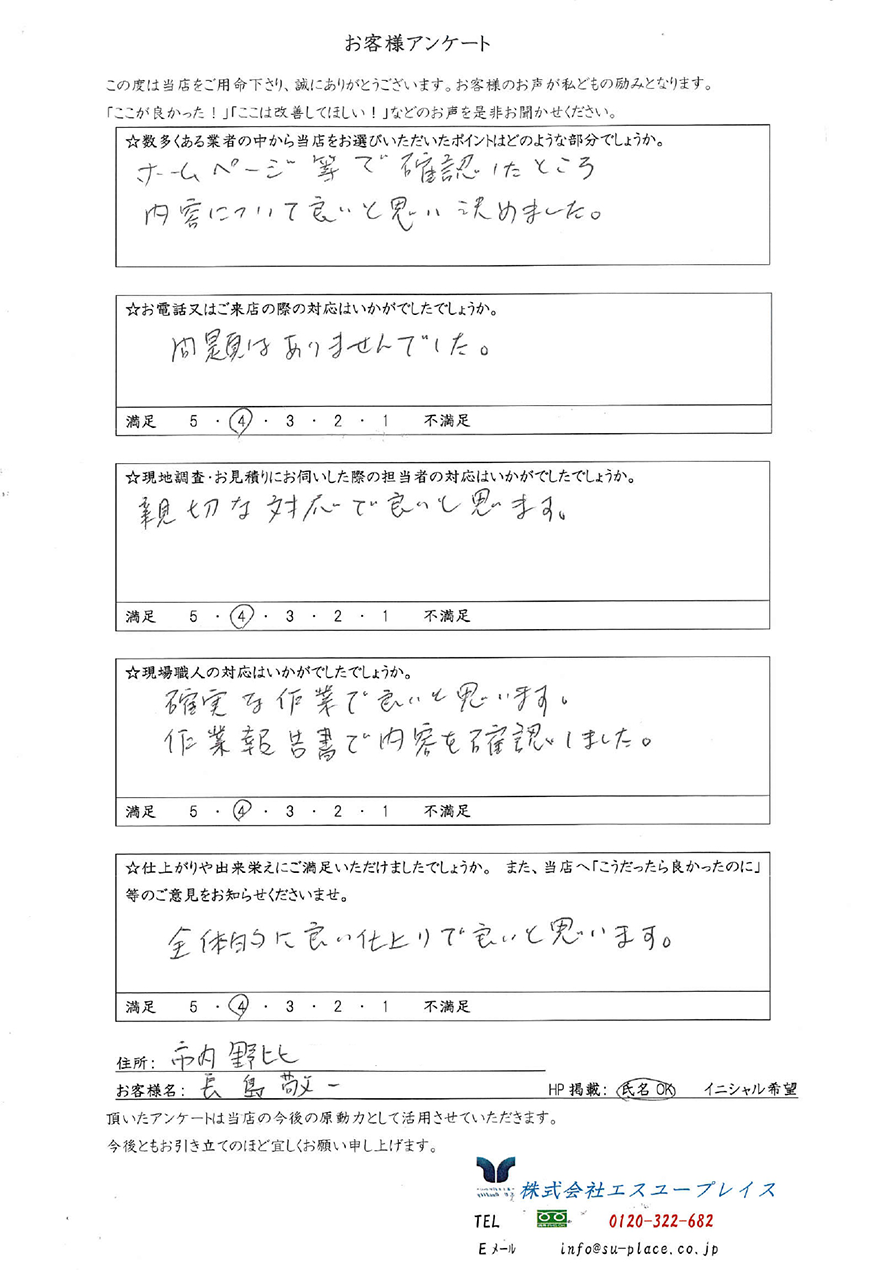 お客様アンケート
この度は当店をご用命下さり、誠にありがとうございます。お客様のお声が私どもの励みとなります。
「ここが良かった！」「ここは改善してほしい！」などのお声を是非お聞かせください。
☆数多くある業者の中から当店をお選びいただいたポイントはどのような部分でしょうか。
ホームページ等で確認したところ
内容について良いと思い決めました。
☆お電話又はご来店の際の対応はいかがでしたでしょうか。
問題はありませんでした。
満足 5 ・ 4 ・ 3 ・ 2 ・ 1 不満足
☆現地調査・お見積りにお伺いした際の担当者の対応はいかがでしたでしょうか。
親切な対応で良いと思います。
満足 5 ・ 4 ・ 3 ・ 2 ・ 1 不満足
☆現場職人の対応はいかがでしたでしょうか。
確実な作業で良いと思います。
作業報告書で内容を確認しました。
満足 5 ・ 4 ・ 3 ・ 2 ・ 1 不満足
☆仕上がりや出来栄えにご満足いただけましたでしょうか。 また、当店へ「こうだったら良かったのに」
等のご意見をお知らせくださいませ。
全体的に良い仕上りで良いと思います。
満足 5 ・ 4 ・ 3 ・ 2 ・ 1 不満足
住所： 市内野比
お客様名： 長島敬一 HP掲載： 氏名OK イニシャル希望
頂いたアンケートは当店の今後の原動力として活用させていただきます。
今後ともお引き立てのほど宜しくお願い申し上げます。
株式会社エスユープレイス
TEL 0120-322-682
Eメール info@su-place.co.jp